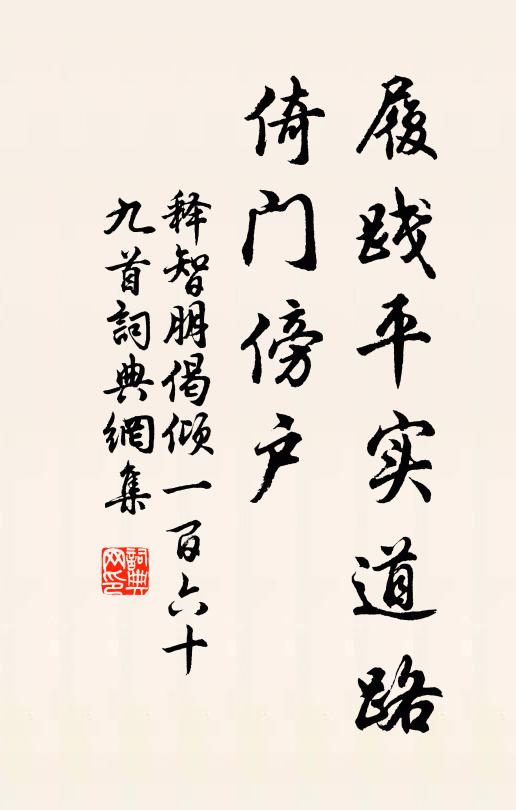 履践平实道路
倚门傍户
释智朋偈倾一百六十
九首詞典網集
詞典
网印